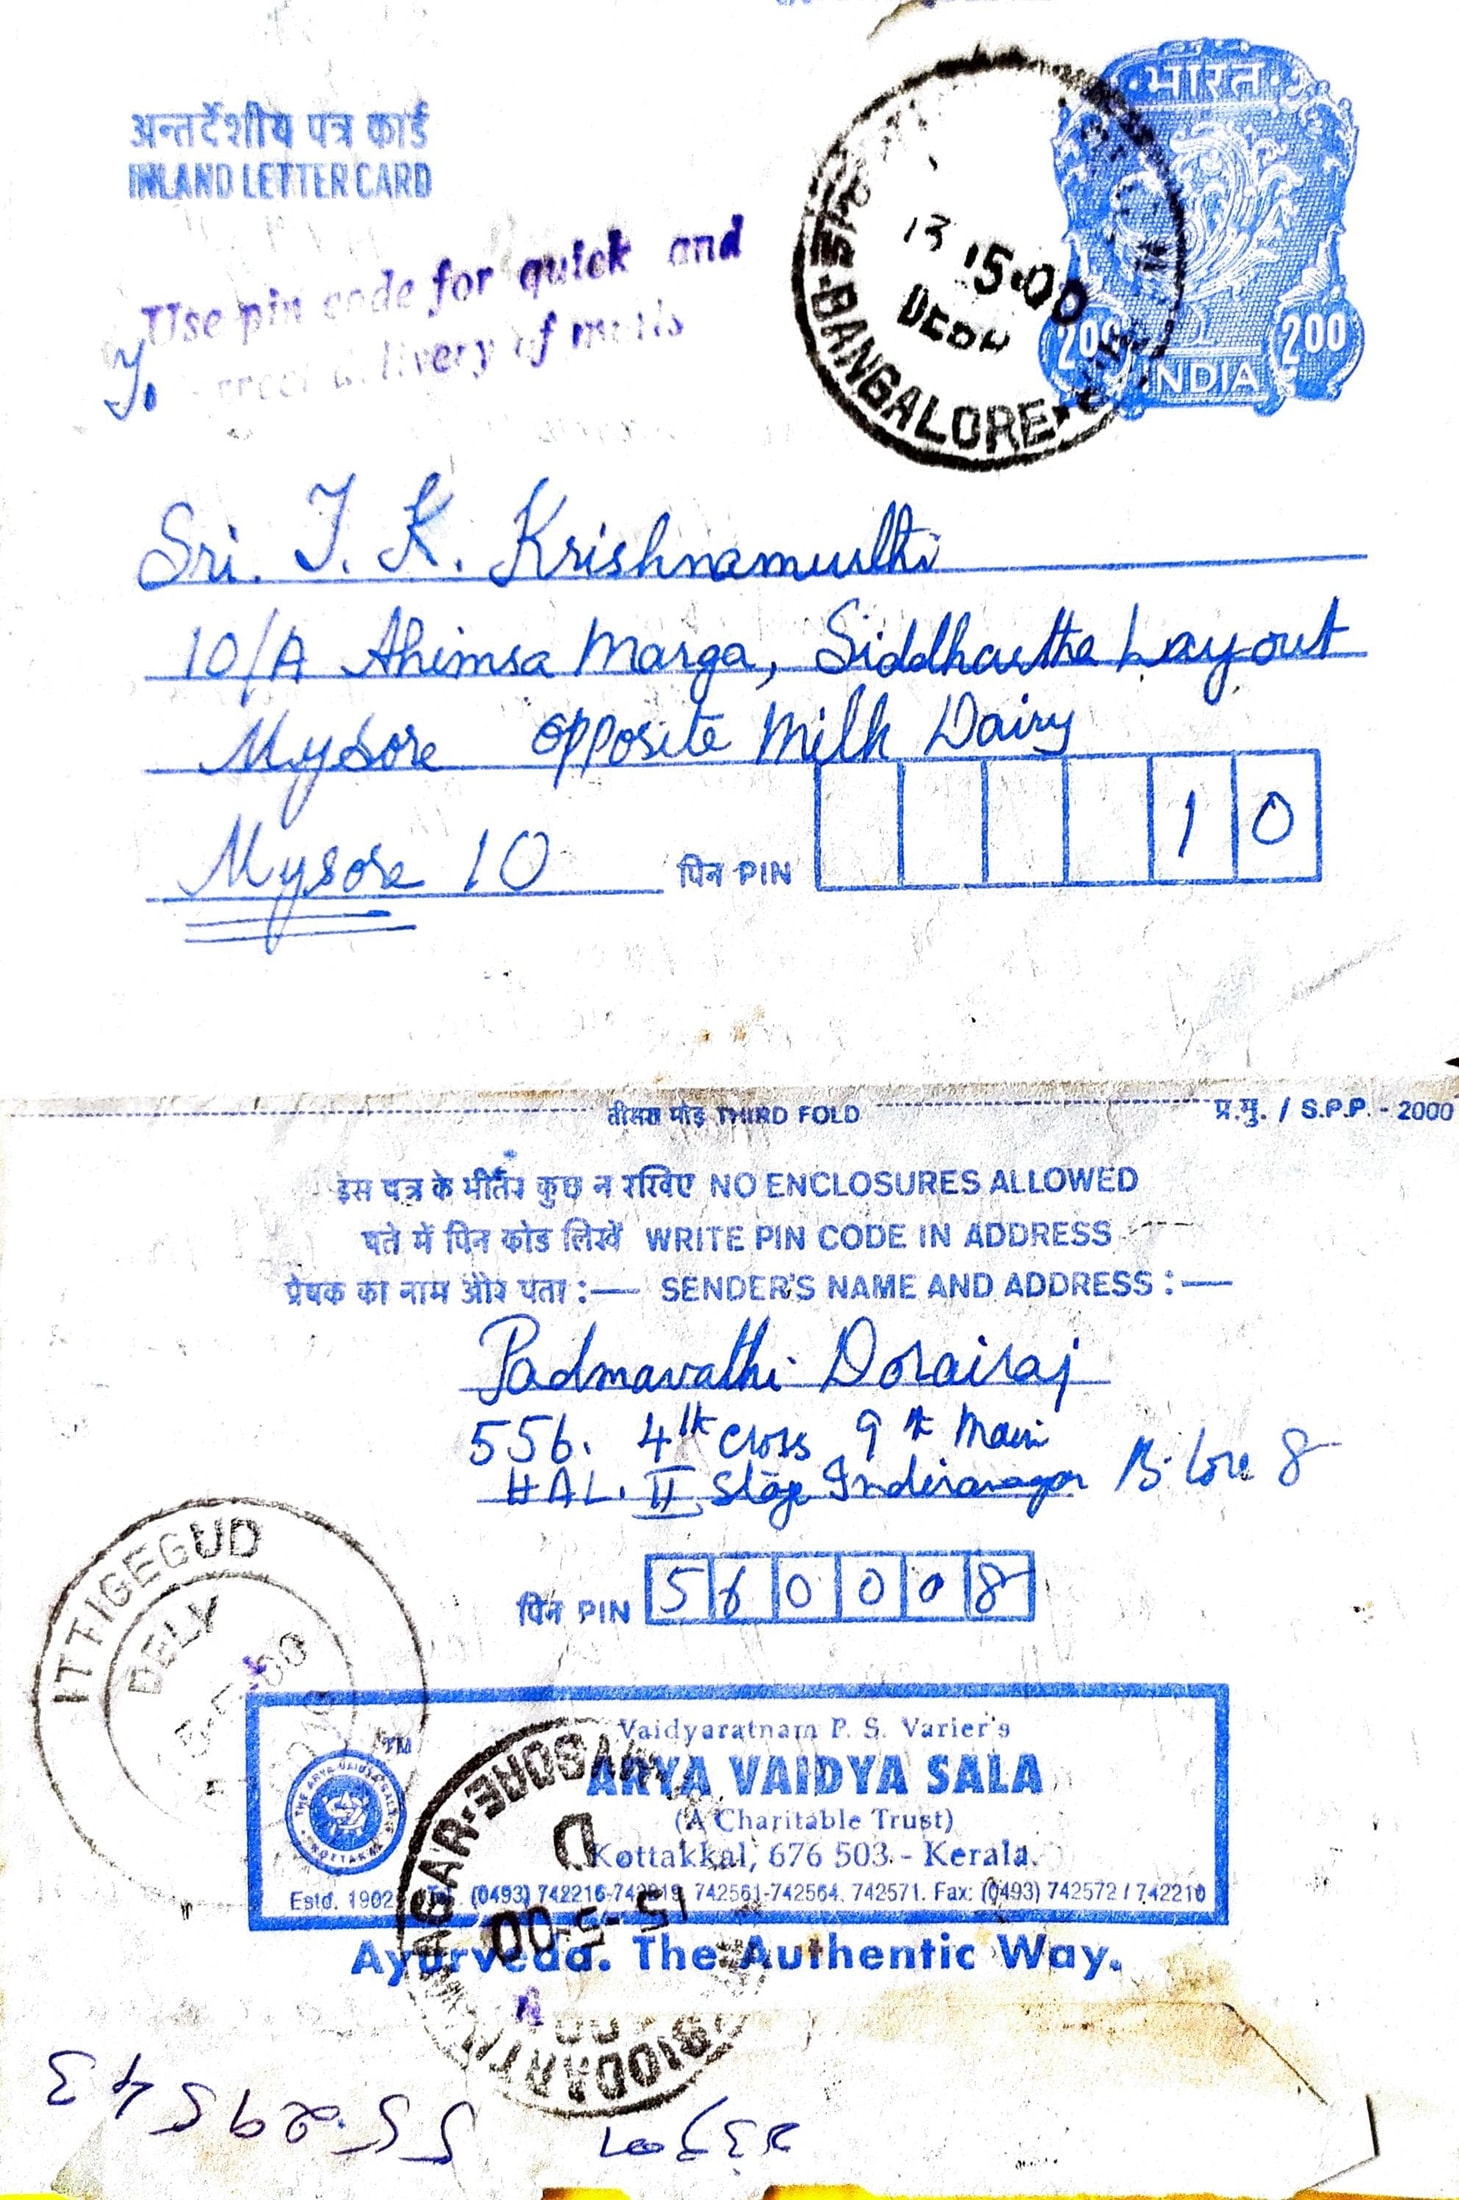 भारत
200 200
INDIA
अन्तर्देशीय पत्र कार्ड
INLAND LETTER CARD
13 15·00
BANGALORE
Use pin code for quick and
delivery of mails
To
Sri. T. K. Krishnamurthi
10/A Ahimsa Marga, Siddhartha Layout
Mysore opposite Milk Dairy
Mysore 10 पिन PIN 10
तीसरा मोड़ THIRD FOLD
प्र.मु. / S.P.P. - 2000
इस पत्र के भीतर कुछ न रखिए NO ENCLOSURES ALLOWED
पते में पिन कोड लिखें WRITE PIN CODE IN ADDRESS
प्रेषक का नाम और पता :— SENDER'S NAME AND ADDRESS :—
Padmavathi Dorairaj
556. 4th cross 9th Main
HAL. II Stage Indiranagar B. lore 8
पिन PIN 560008
ITTIGEGUD
DELY
Vaidyaratnam P. S. Varier's
TM
ARYA VAIDYA SALA
(A Charitable Trust)
Kottakkal, 676 503 - Kerala.
Estd. 1902 Tel. (0493) 742216-742219, 742561-742564, 742571. Fax: (0493) 742572 / 742210
Ayurveda. The Authentic Way.
MYSORE
D
15-5-00
5529543